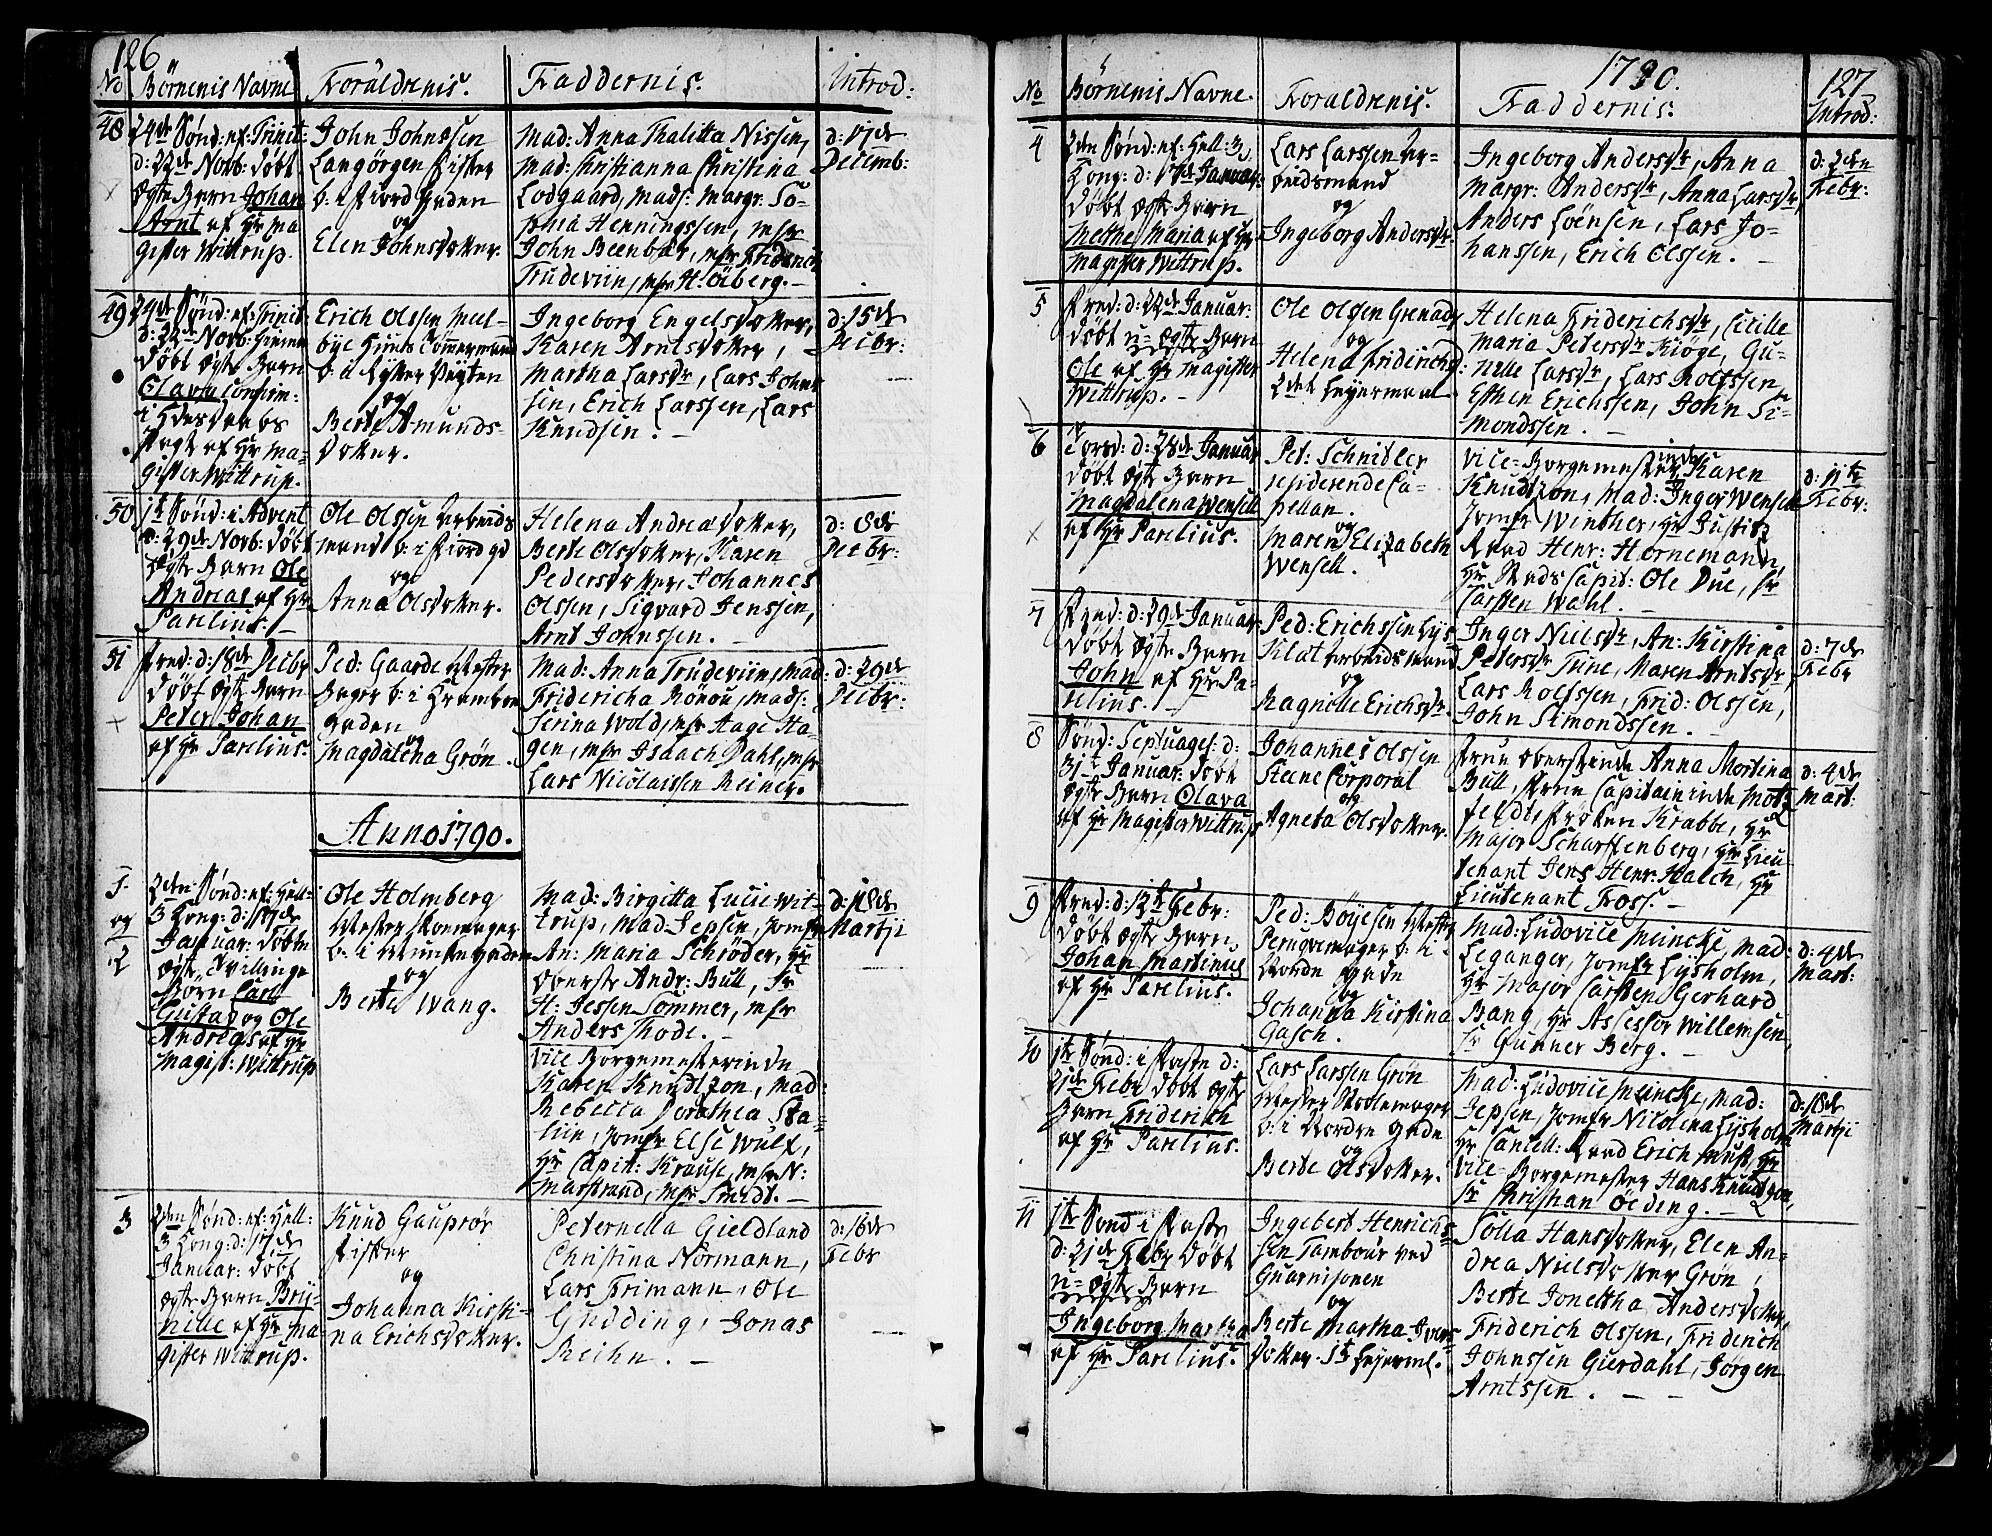 126
No Børnenis Navne Forældrenis. Faddernis. Introd:
48
24de Sønd: ef: Trinit:
d: 22de Novb: døbt
Ægte Barn Johan
Arnt af Hr Ma
gister Wittrup.
John Johnssen
Langørgen Fisker
b: i Fiordgaden
og
Elen Johnsdotter.
Mad: Anna Thalitta Nissen,
Mad: Christianna Christina
Lodgaard, Mads: Margr: So-
phia Henningssen, Msr
John Beenbar, Msr Friderich
Trudeviin, Msr H: Öiberg. -
d: 17de
Decemb:
49
24de Sönd: ef: Trinit:
d: 22de Novb:
døbt Ægte Barn
Olava Confirm:
i
af Hr Ma-
gister Wittrup.
Erich Olssen Mel-
bye Huus Tömmermand
b: i
og
Berte Amunds-
dotter.
Ingeborg Engelsdotter,
Karen Arntsdotter,
Martha Larsdr, Lars Johns
sen, Erich Larssen, Lars
Knudsen. -
d: 15de
Decbr:
50
1te Sönd: i Advent
d: 29de Novb: døbt
Ægte Barn Ole
Andreas af Hr
Parelius. -
Ole Olssen Arbeids
mand b: i Fiordgd
og
Anna Olsdotter.
Helena Andreædotter,
Berte Olsdotter, Karen
Pedersdotter, Johannes
Olssen, Sigvard Jenssen,
Arnt Johnssen. -
d: 8de
Decbr:
51
Fred: d: 18de Decbr
døbt Ægte Barn
Peter Johan
af Hr Parelius.
Ped: Gaarde Mester
Bager b: i Krambod
gaden
og
Magdalena Grön.
Mad: Anna Trudeviin, Mad:
Fridericha Rönou, Mads:
Serina Wold, Msr Aage Ha-
gen, Msr Isaach Dahl, Msr
Lars Nicolaissen Reiner.
d: 29de
Decbr:
Anno 1790.
1.
og
2
2den Sönd: ef: Hell:
3 Kong: d: 17de
Januar: døbte
Ægte Tvillinge
Børn Carl
Gustav og Ole
Andreas af Hr
Magist: Wittrup
Ole Holmberg
Mester Skomager
b: i Munkegaden
og
Berte Wang.
Mad: Birgitta Lucie Wit-
trup, Mad Jepsen, Jomfr
An: Maria Schröder, Hr
Oberste Andr: Bull, Sr
H: Jessen Sommer, Msr
Anders Thode. -
Vice Borgemesterinde
Karen Knudtzon, Mad:
Rebecca Dorathea Sta-
liin, Jomfr Else Wulf,
Hr Capit: Krause, Msr N:
Marstrand, Msr Smidt. -
d: 18de
Martji
3
2den Sönd: ef: Hell:
3 Kong: d: 17de
Januar: døbt
Ægte Barn Bry-
nille af Hr Ma
gister Wittrup.
Knud Gauprör
Fisker
og
Johanna Kirsti-
na Erichsdotter.
Peternella Gieldland
Christina Normann,
Lars Frimann, Ole
Gudding, Jonas
Reihn. -
d: 16de
Febr
1790. 127
No Børnenis Navne. Forældrenis. Faddernis. Introd:
4
2den Sönd: ef: Hell: 3
Kong: d: 17de Januar:
døbt Ægte Barn
Methe Maria af Hr
Magister Wittrup.
Lars Larssen Ar-
beidsmand
og
Ingeborg Andersdr.
Ingeborg Andersdr, Anna
Margr: Andersdr, Anna Larsdr,
Anders Löensen, Lars Jo-
hanssen, Erich Olssen. -
d: 2den
Febr:
5
Fred: d: 22de Januar:
døbt u-Ægte Barn
Ole af Hr Magister
Wittrup. -
Ole Olssen Grenader
og
Helena Friderichsd:
2det Leyermaal
Helena Friderichsdr, Cicilie
Maria Petersdr Kiöge, Gu-
nille Larsdr, Lars Rolfssen,
Esten Erichssen, John Si-
mondssen. -
6
Torsd: d: 28de Januar
døbt Ægte Barn
Magdalena Wensell
af Hr Parelius.
Pet: Schnitler
residerende Ca-
pellan.
og
Maren Elizabeth
Wensell.
Vice-Borgemesterinde Karen
Knudtzon, Mad: Inger Wensell
Jomfr Winther, Hr Justitz
Raad Henr: Hornemann,
Hr Capit: Ole Due, Sr
Carsten Wahl. -
d: 11te
Febr:
7
Fred: d: 29de Januar
døbt Ægte Barn
John af Hr Pa-
relius. -
Ped: Erichssen Lys
Klat Arbeidsmand
og
Ragnille Erichsdr.
Inger Nielsdr, An: Kirstina
Petersdr Trine, Maren Arntsdr,
Lars Rolfssen, Frid: Olssen,
John Simondssen. -
d: 7de
Febr
8
Sönd: Septuages: d:
31te Januar: døbt
Ægte Barn Olava
af Hr Magister Wittrup
Johannes Olssen
Steene Corporal
og
Agneta Olsdotter.
Frue Oberstinde Anna Mortina
Bull, Frue Capitaininde Motz
feldt, Fröken Krabbe, Hr
Major Scharffenberg, Hr Lieu
tenant Jens Henr: Halch, Hr
Lieutenant Foss. -
d: 4de
Mart:
9
Fred: d: 12te Febr:
døbt Ægte Barn
Johan Martinus
af Hr Parelius.
Ped: Böyesen Mester
Peruqvemager b: i
Nordre gade
og
Johanna Kirstina
Gasch.
Mad: Ludovice Meincke, Mad:
Leganger, Jomfr Lysholm,
Hr Major Carsten Gerhard
Bang, Hr Assessor Willemsen,
Sr Gunner Berg. -
d: 4de
Mart:
10
1te Sönd: i Faste d:
21de Febr døbt Ægte
Barn Friderich
af Hr Parelius.
Lars Larssen Grön
Mester
b: i Nordre Gade
og
Berte Olsdotter.
Mad: Ludovice Meincke, Mad:
Jepsen, Jomfr Nicolina Lysholm
Hr Cancell: Raad Erich Must, Hr
Vice-Borgemester Hans Knudtzon,
Sr Christian Öeding. -
d: 18de
Martji
11
1te Sönd i Faste
d: 21de Febr døbt
u-Ægte Barn
Ingeborg Martha
af Hr Parelius.
Ingebert Henrichs-
sen Tambour ved
Guarnisonen
og
Berte Martha Ivers
dotter. 1te Leyerml.
Solla Hansdotter, Elen An-
drea Nielsdotter Grön,
Berte Jonetha Andersdotter,
Friderich Olssen, Friderich
Johnssen Gierdahl, Jörgen
Arntssen. - -